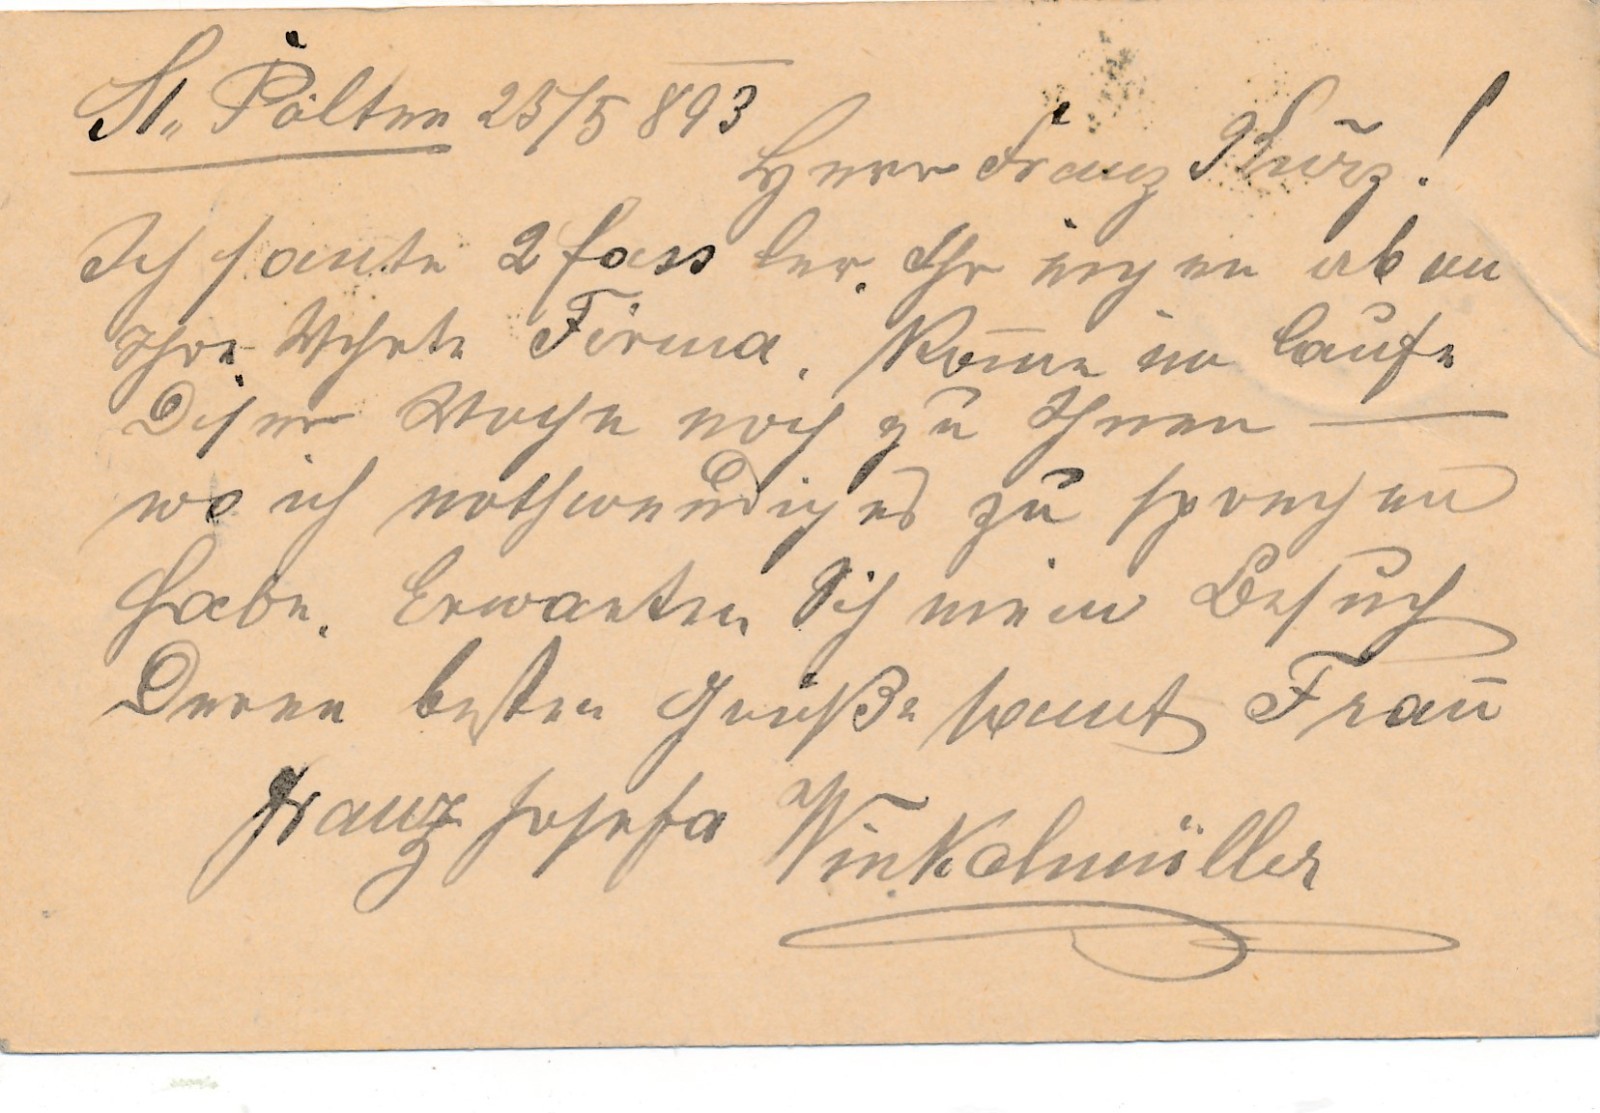 St. Pölten 25/5 893
Herr Franz Kurz!
Ich sante 2 fass ler. Ihr eigen ab an
Ihre Wehrte Firma. Kome im laufe
Diser Woche noch zu Ihnen —
wo ich nothwendiges zu sprechen
habe. Erwarten Sich mein Besuch
Deren besten Grüße samt Frau
Franz Josefa Winkelmüller